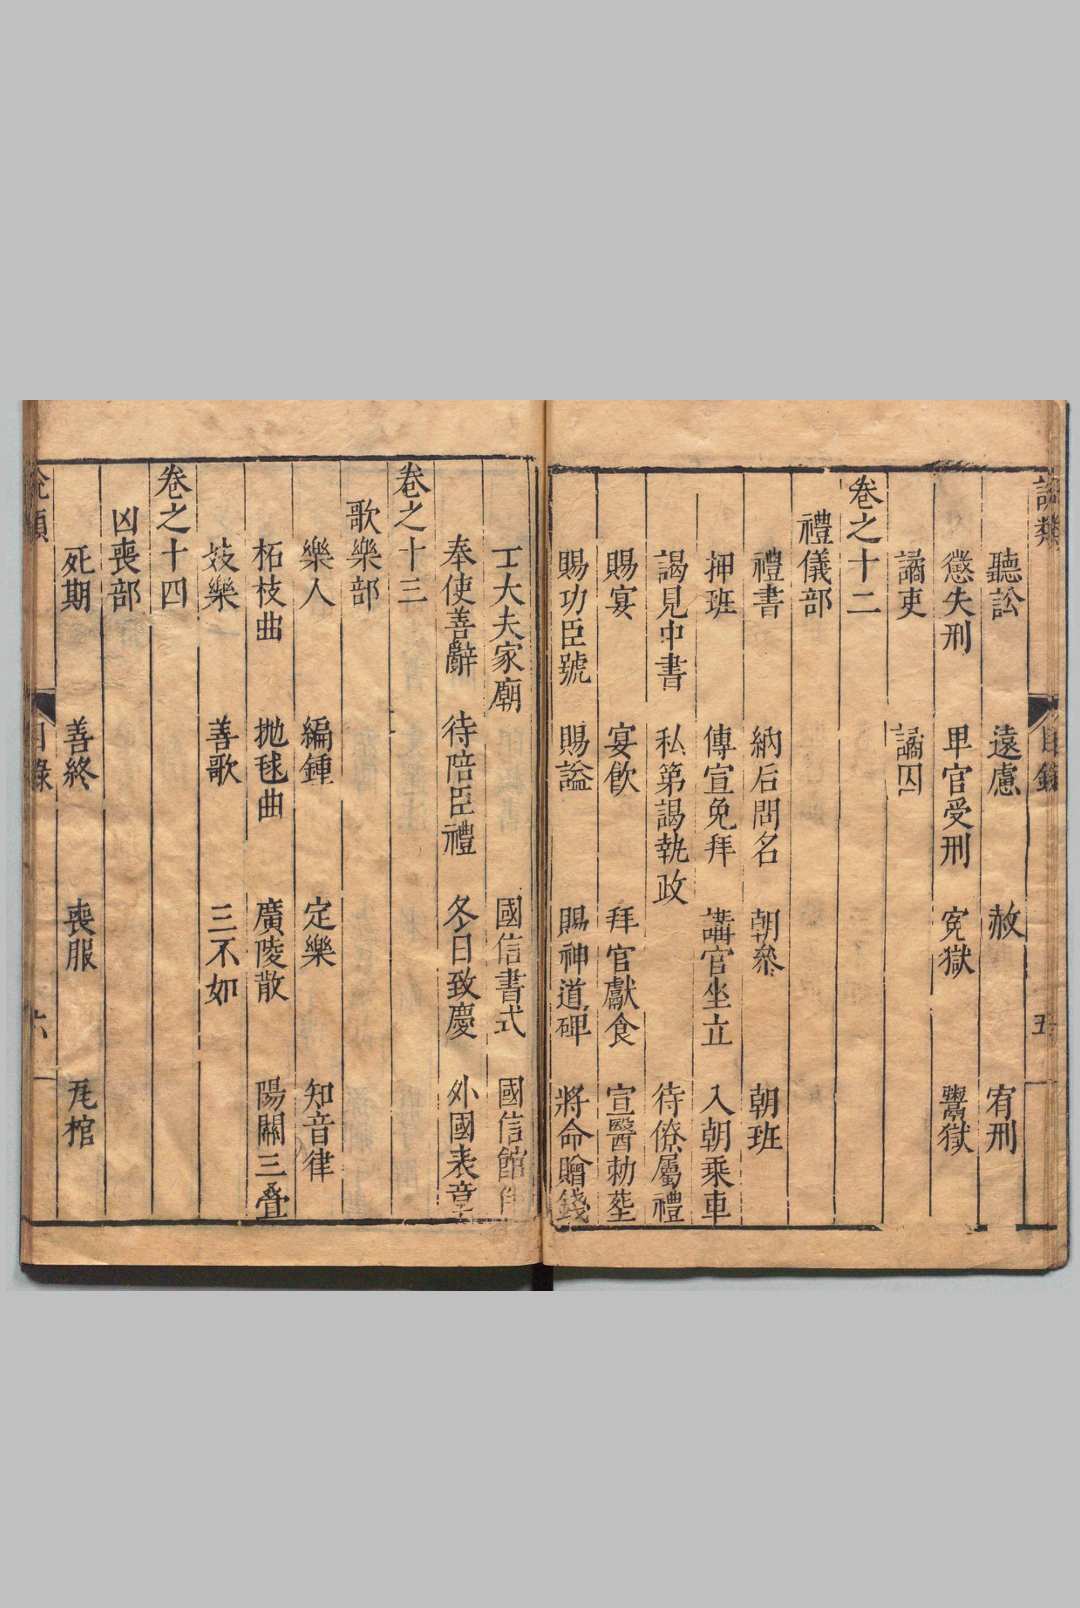 聽訟 遠慮 赦 宥刑
懲失刑 甲官受刑 寃獄 鬻獄
譎吏 譎囚
卷之十二
禮儀部
禮書 納后問名 朝參 朝班
押班 傳宣免拜 講官坐立 入朝乘車
謁見中書 私第謁執政 待僚屬禮
賜宴 宴飲 拜官獻食 宣醫勑塟
賜功臣號 賜謚 賜神道碑 將命贈錢
大夫家廟 國信書式 國信館
奉使善辭 待陪臣禮 冬日致慶 外國表章
卷之十三
歌樂部
樂人 編鍾 定樂 知音律
柘枝曲 拋毬曲 廣陵散 陽關三疊
妓樂 善歌 三不如
卷之十四
凶喪部
死期 善終 喪服 瓦棺
目錄 六